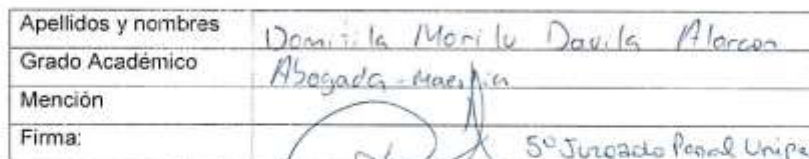 Apellidos y nombres Domitila Marilu Davila Alarcon
Grado Académico Abogada - Maestria
Mención
Firma: 5º Juzgado Penal Unipe